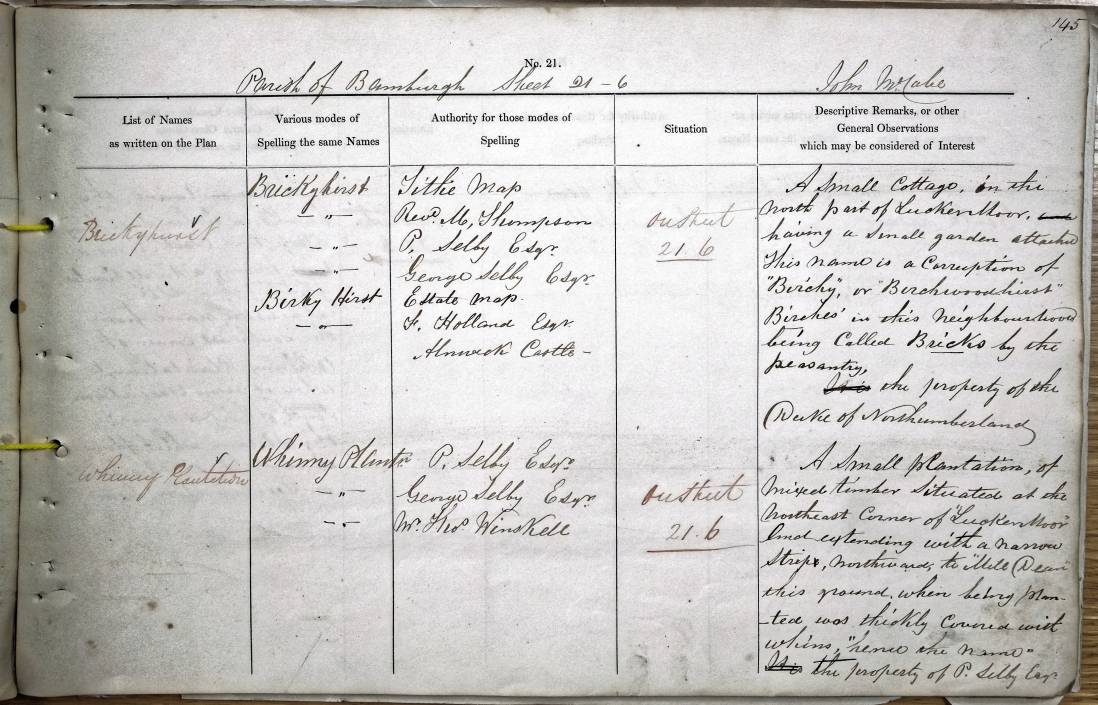 145
No. 21.
Parish of Bamburgh Sheet 21-6 John McCabe
List of Names
as written on the Plan
Various modes of
Spelling the same Names
Authority for those modes of
Spelling
Situation
Descriptive Remarks, or other
General Observations
which may be considered of Interest
Brickyhurst
Brickyhirst
— " —
— " —
— " —
Birky Hirst
— " —
Tithe Map
Revd. M. Thompson
P. Selby Esqr.
George Selby Esqr.
Estate Map.
F. Holland Esqr.
Alnwick Castle -
on sheet
21.6
A Small Cottage, in the
North part of Lucker Moor,
having a Small garden attached
This name is a Corruption of
"Birchy", or "Birchwoodhirst"
Birches' in this Neighbourhood
being Called Bricks by the
peasantry,
It is the property of the
Duke of Northumberland
Whinny Plantation
Whinny Plantn.
— " —
— " —
P. Selby Esqr.
George Selby Esqr.
Mr. Thos. Winskell
on sheet
21.6
A Small plantation, of
Mixed timber Situated at the
Northeast Corner of "Lucker Moor"
and extending with a narrow
Strip, Northward, to "Mill Dean"
this ground, when being plan-
-ted was thickly Covered with
whins, "hence the name"
It is the property of P. Selby Esqr.